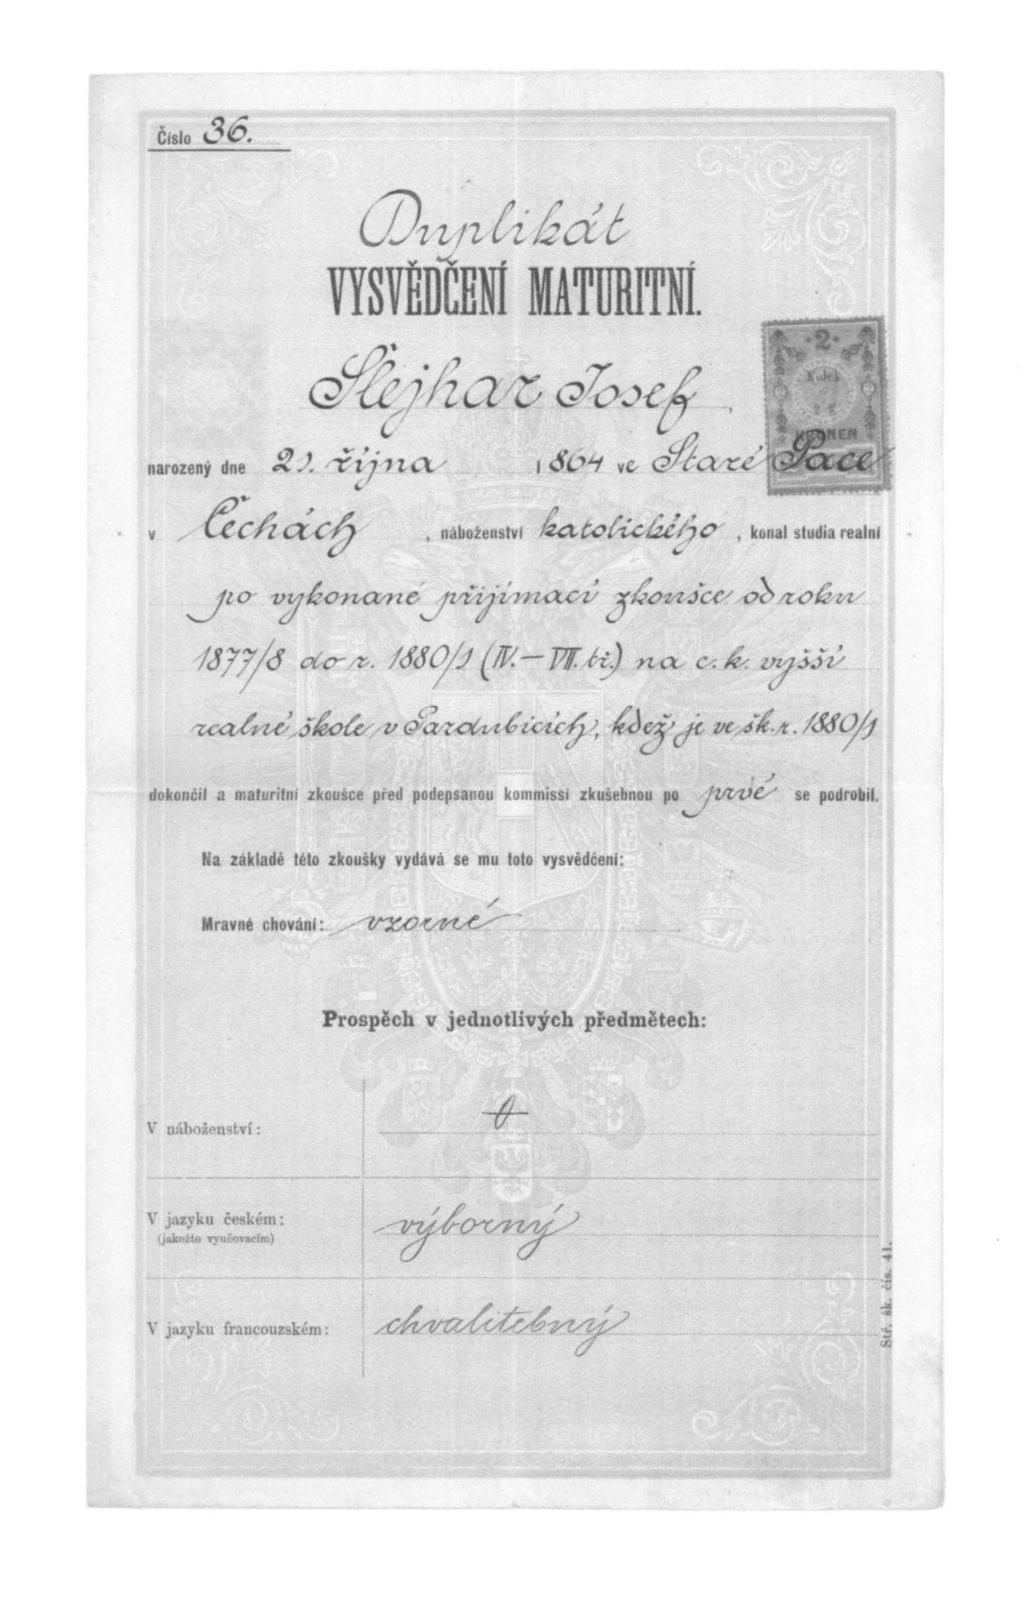 Číslo 36.
Duplikát
VYSVĚDČENÍ MATURITNÍ.
Šlejhar Josef,
2
Kolek
2 K
KRONEN
narozený dne 21. října 1864 ve Staré Pace
v Čechách, náboženství katolického, konal studia realní
po vykonané přijímací zkoušce od roku
1877/8 do r. 1880/1 (IV.–VII. tř.) na c. k. vyšší
realné škole v Pardubicích, kdež je ve šk. r. 1880/1
dokončil a maturitní zkoušce před podepsanou kommissí zkušebnou po prvé se podrobil.
Na základě této zkoušky vydává se mu toto vysvědčení:
Mravné chování: vzorné
Prospěch v jednotlivých předmětech:
V náboženství:
V jazyku českém: výborný
(jakožto vyučovacím)
V jazyku francouzském: chvalitebný
Stř. šk. čís. 41.